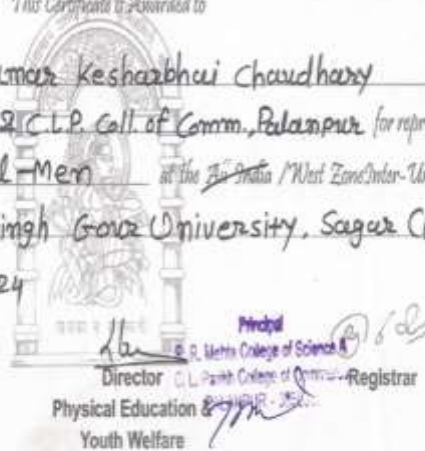 This Certificate is Awarded to
mar Kesharbhai Chaudhary
& C.L.P. Coll. of Comm., Palanpur for repr
l-Men at the All India / West Zone Inter-Un
ingh Gour University, Sagar
24
Principal
R. R. Mehta College of Science &
Director C. L. Parikh College of Registrar
Physical Education &
Youth Welfare